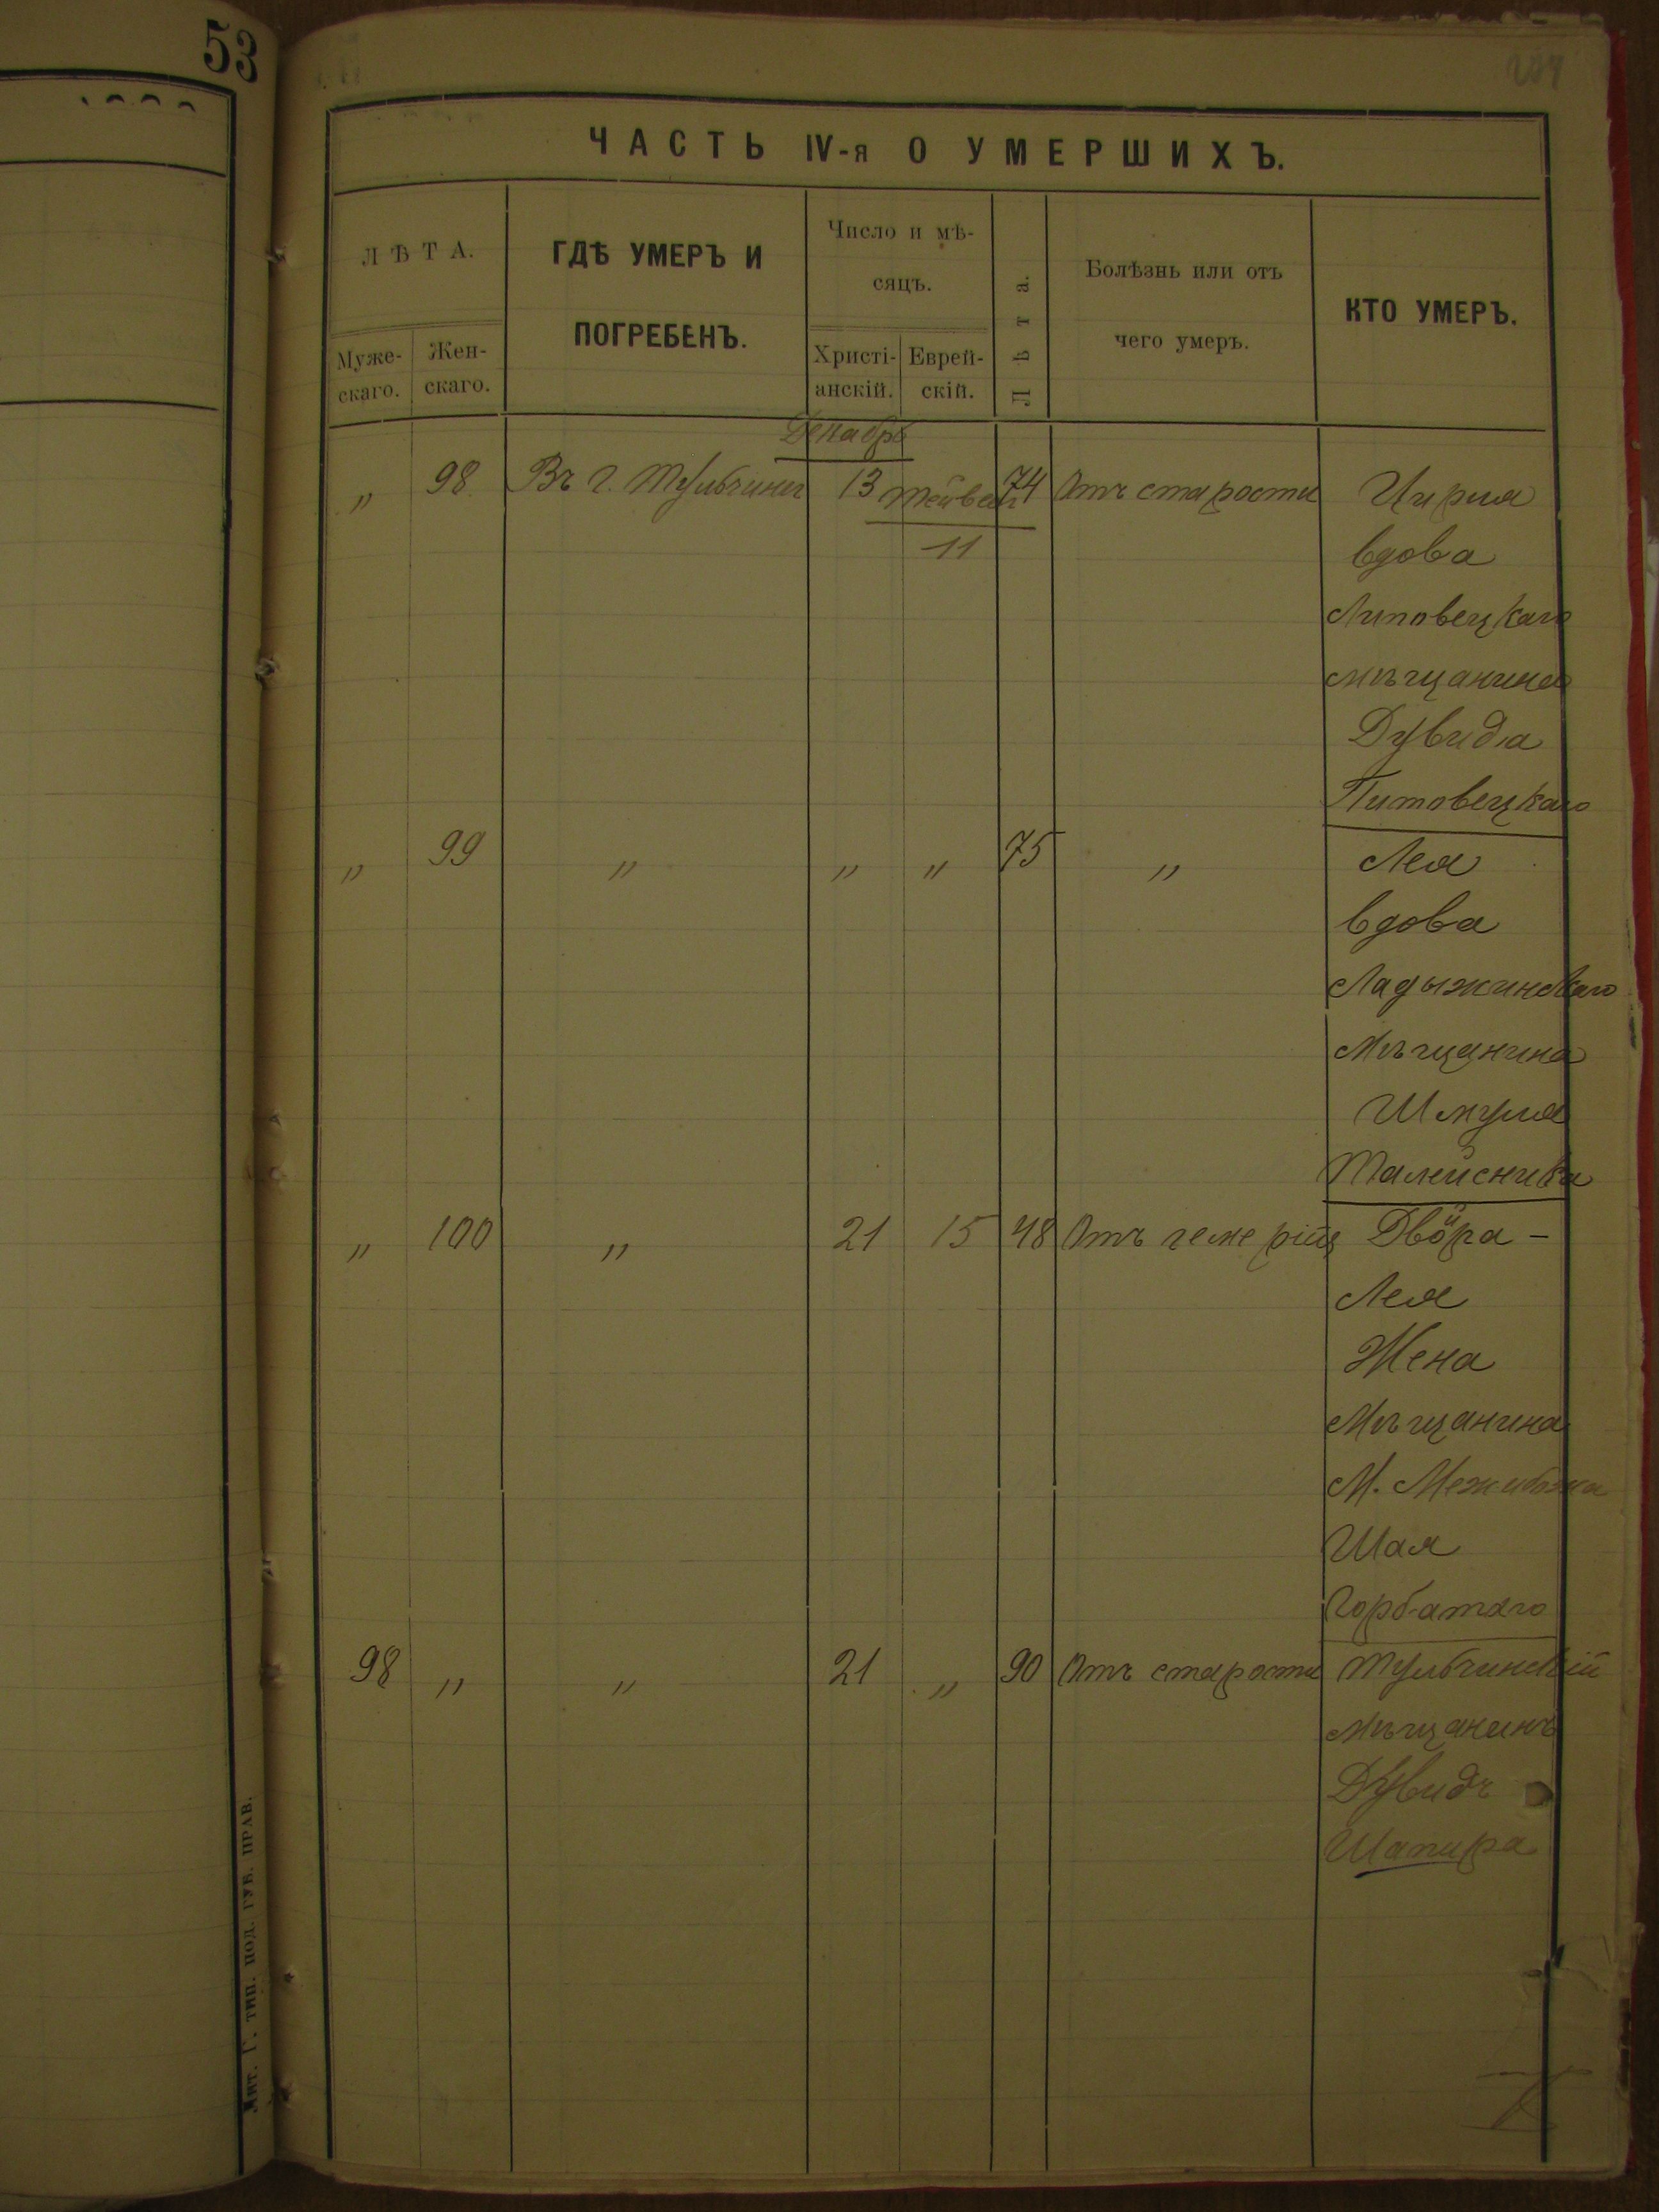 53
ЧАСТЬ IV-я О УМЕРШИХЪ.
ЛѢТА.
Муже-
скаго.
Жен-
скаго.
ГДѢ УМЕРЪ И
ПОГРЕБЕНЪ.
Число и мѣ-
сяцъ.
Христі-
анскій.
Еврей-
скій.
Лѣта.
Болѣзнь или отъ
чего умеръ.
КТО УМЕРЪ.
Декабрь
„ 98 Въ г. Тульчинѣ 13 Тейвет 74 Отъ старости Цирля
11 вдова
Литовецкаго
мѣщанина
Дувида
Литовецкаго
„ 99 „ „ „ 75 „ Лея
вдова
Ладыжинскаго
Мѣщанина
Шмуля
Талейсника
„ 100 „ 21 15 48 Отъ Двойра -
Лея
Жена
Мѣщанина
М. Межибожа
Шая
Горбатаго
98 „ „ 21 „ 90 Отъ старости Тульчинскій
мѣщанинъ
Дувидъ
Шапира
Лит. Г. тип. под. губ. прав.